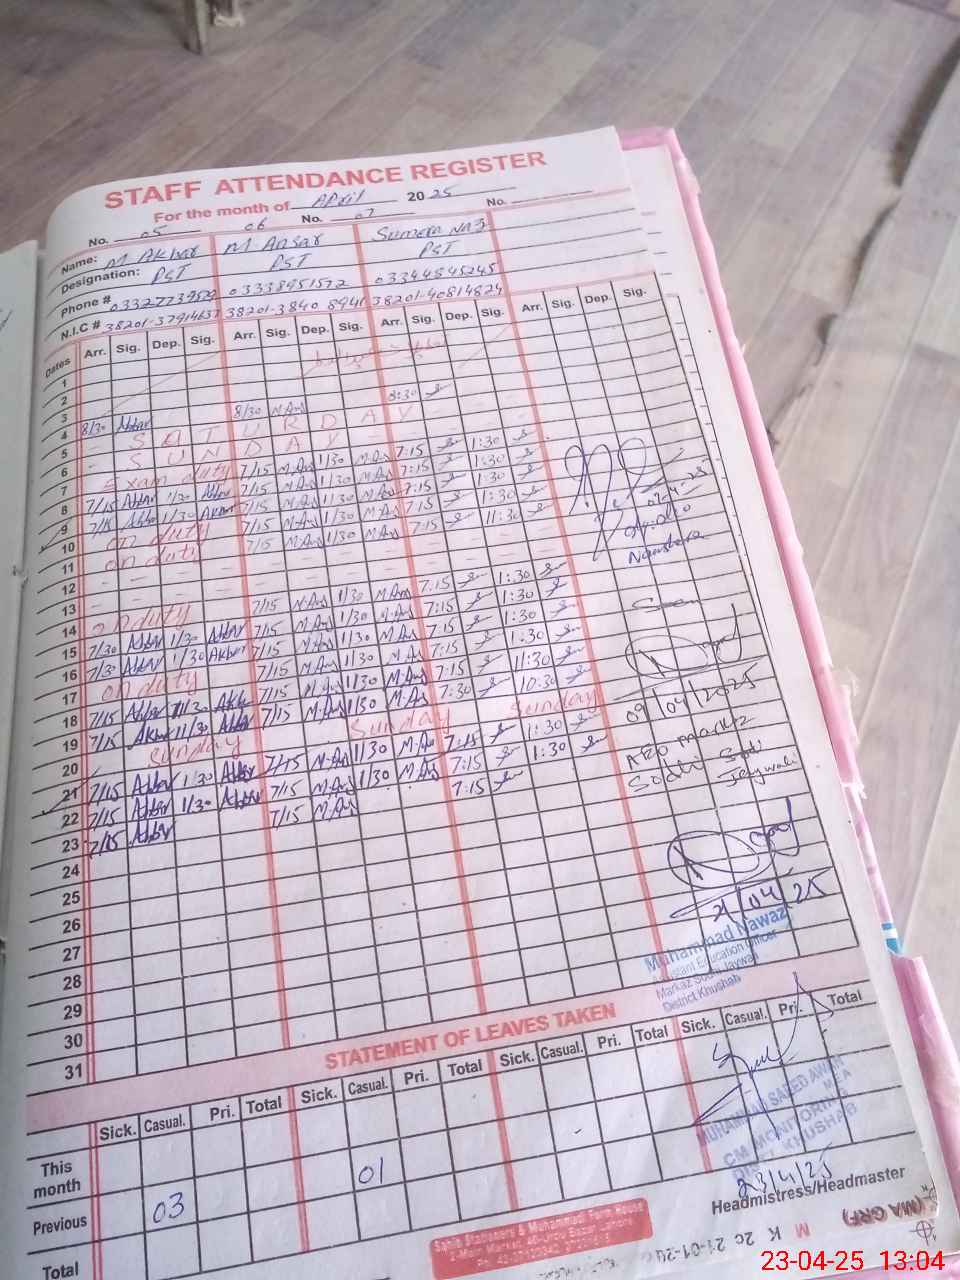 STAFF ATTENDANCE REGISTER
For the month of April 2025
No. 05 06 No. 07 No.
Name: M Akbar M. Ansar Sumera Naz
Designation: PST PST PST
Phone # 03338951572 03344845245
N.I.C # 38201-3840 8941 38201-40814824
Dates Arr. Sig. Dep. Sig. Arr. Sig. Dep. Sig. Arr. Sig. Dep. Sig. Arr. Sig. Dep. Sig.
1
2
3
4 8/30 Akbar 8/30 M.Ans 8:30
5 SATURDAY
6 SUNDAY
7 Exam duty 7/15 M.Ans 1/30 M.Ans 7:15 1:30
8 7/15 Akbar 1/30 Akbar 7/15 M.Ans 1/30 M.Ans 7:15 1:30
9 7/15 Akbar 1/30 Akbar 7/15 M.Ans 1/30 M.Ans 7:15 1:30
10 on duty 7/15 M.Ans 1/30 M.Ans 7:15 11:30
11 on duty 7/15 M.Ans 1/30 M.Ans 7:15
12
13
14 on duty 7/15 M.Ans 1/30 M.Ans 7:15 1:30
15 7/30 Akbar 1/30 Akbar 7/15 M.Ans 1/30 M.Ans 7:15 1:30
16 7/30 Akbar 1/30 Akbar 7/15 M.Ans 1/30 M.Ans 7:15 1:30
17 on duty 7/15 M.Ans 1/30 M.Ans 7:15 1:30
18 7/15 Akbar 11/30 Akbar 7/15 M.Ans 1/30 M.Ans 7:15 11:30
19 7/15 Akbar 11/30 Akbar 7/15 M.Ans 1/30 M.Ans 7:30 10:30
20 Sunday Sunday Sunday
21 7/15 Akbar 1/30 Akbar 7/15 M.Ans 1/30 M.Ans 7:15 1:30
22 7/15 Akbar 1/30 Akbar 7/15 M.Ans 1/30 M.Ans 7:15 1:30
23 7/15 Akbar 7/15 M.Ans 7:15
24
25
26
27
28
29
30
31
Naushera
09/04/2025
AEO Markaz
Sodhi Jaywali
21/04/25
Muhammad Nawaz
Assistant Education Officer
Markaz Sodhi Jaywali
District Khushab
STATEMENT OF LEAVES TAKEN
Sick. Casual. Pri. Total Sick. Casual. Pri. Total Sick. Casual. Pri. Total Sick. Casual. Pri. Total
This month
Previous 03 01
Total
MUHAMMAD SAEED AWAN
MEA
CM MONITORING
DIST. KHUSHAB
23/4/25
Headmistress/Headmaster
23-04-25 13:04